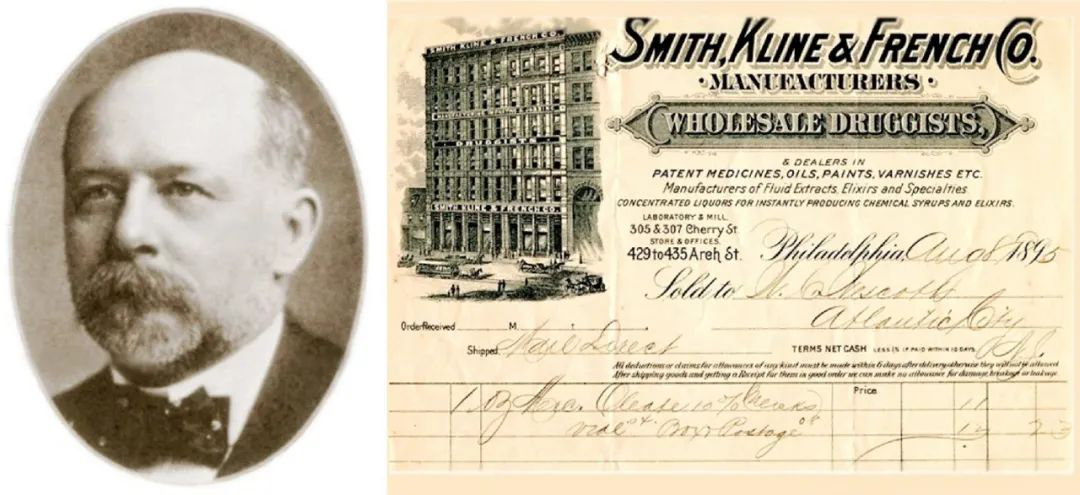 SMITH, KLINE & FRENCH CO.
MANUFACTURERS
DRUGGISTS
SMITH KLINE & FRENCH CO.
SMITH, KLINE & FRENCH CO.
• MANUFACTURERS •
WHOLESALE DRUGGISTS,
& DEALERS IN
PATENT MEDICINES, OILS, PAINTS, VARNISHES ETC.
Manufacturers of Fluid Extracts, Elixirs and Specialties
CONCENTRATED LIQUORS FOR INSTANTLY PRODUCING CHEMICAL SYRUPS AND ELIXIRS.
LABORATORY & MILL.
305 & 307 Cherry St.
STORE & OFFICES.
429 to 435 Arch St.
Philadelphia, Aug 8 1895
Sold to
Atlantic City
Order Received M.
Shipped Mail Direct
TERMS NET CASH LESS 1% IF PAID WITHIN 10 DAYS.
All deductions or claims for allowances of any kind must be made within 6 days after delivery otherwise they will not be allowed
After shipping goods and getting a Receipt for them in good order we can make no allowance for damage, breakage or leakage
Price
1 oz Merc. Oleate 10% 11
vial 04 Box & Postage 08 12 23